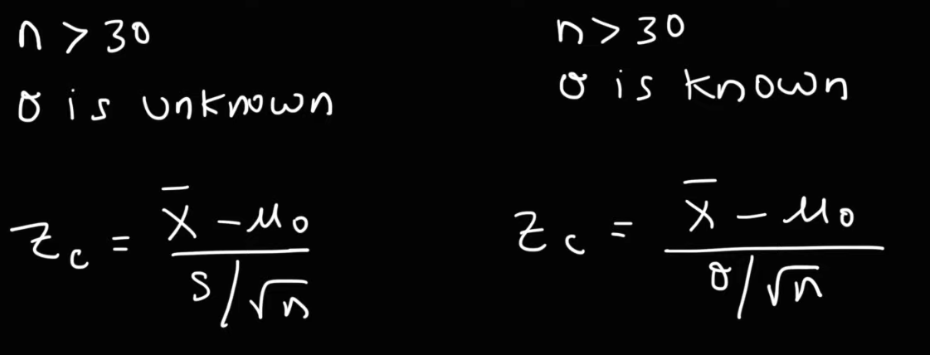 n > 30
σ is unknown
z_c = (x̄ - μ₀) / (s/√n)
n > 30
σ is known
z_c = (x̄ - μ₀) / (σ/√n)